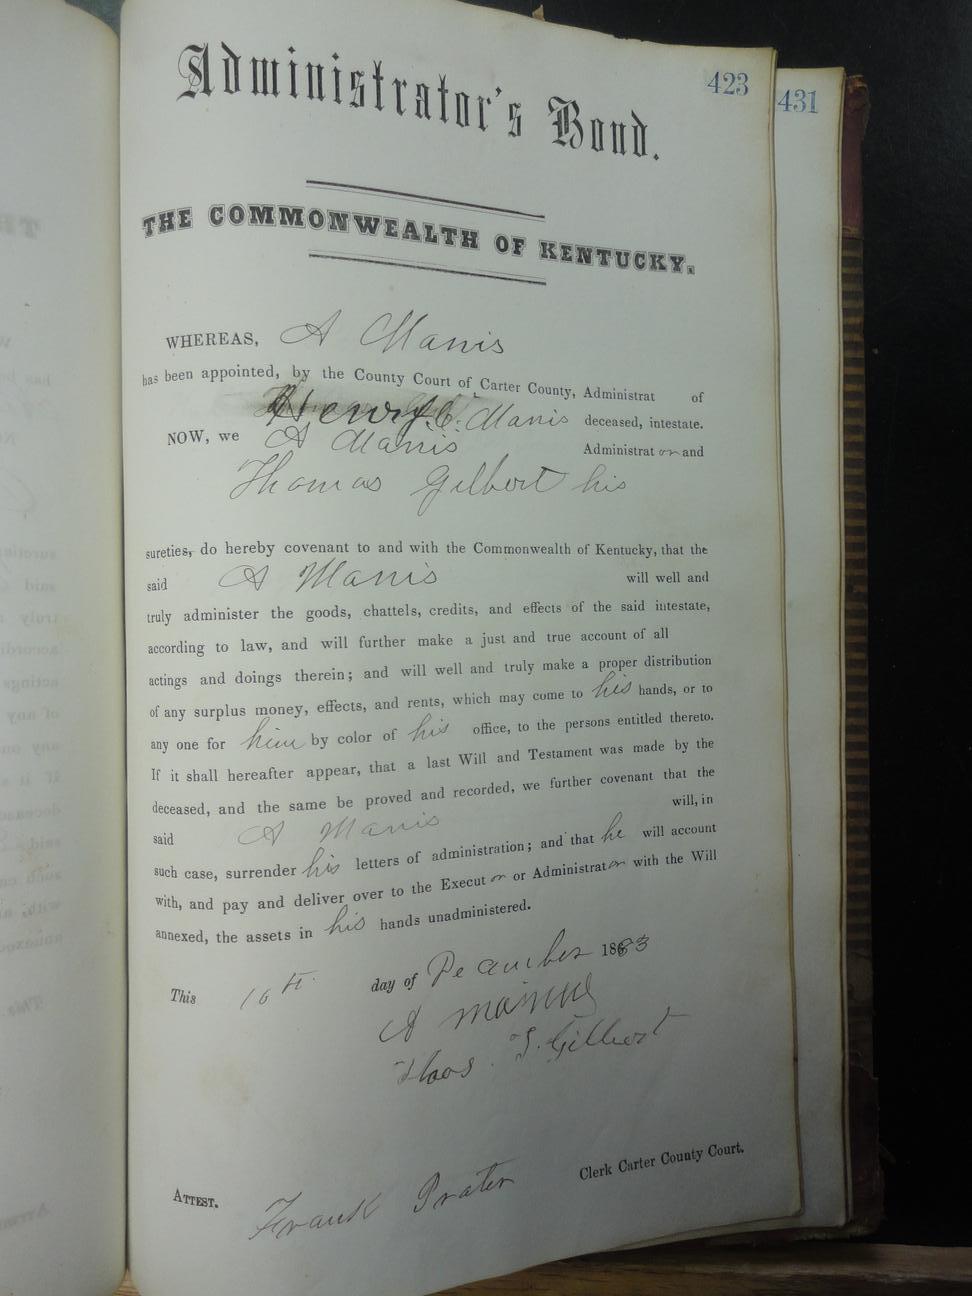 423
431
Administrator's Bond.
THE COMMONWEALTH OF KENTUCKY.
WHEREAS, A Manis
has been appointed, by the County Court of Carter County, Administrat of
Henry C. Manis deceased, intestate.
NOW, we A Manis Administrat or and
Thomas Gilbert his
sureties, do hereby covenant to and with the Commonwealth of Kentucky, that the
said A Manis will well and
truly administer the goods, chattels, credits, and effects of the said intestate,
according to law, and will further make a just and true account of all
actings and doings therein; and will well and truly make a proper distribution
of any surplus money, effects, and rents, which may come to his hands, or to
any one for him by color of his office, to the persons entitled thereto.
If it shall hereafter appear, that a last Will and Testament was made by the
deceased, and the same be proved and recorded, we further covenant that the
said A Manis will, in
such case, surrender his letters of administration; and that he will account
with, and pay and deliver over to the Execut or or Administrat or with the Will
annexed, the assets in his hands unadministered.
This 10th day of December 1883
A
Thos. J. Gilbert
ATTEST. Frank Prater Clerk Carter County Court.